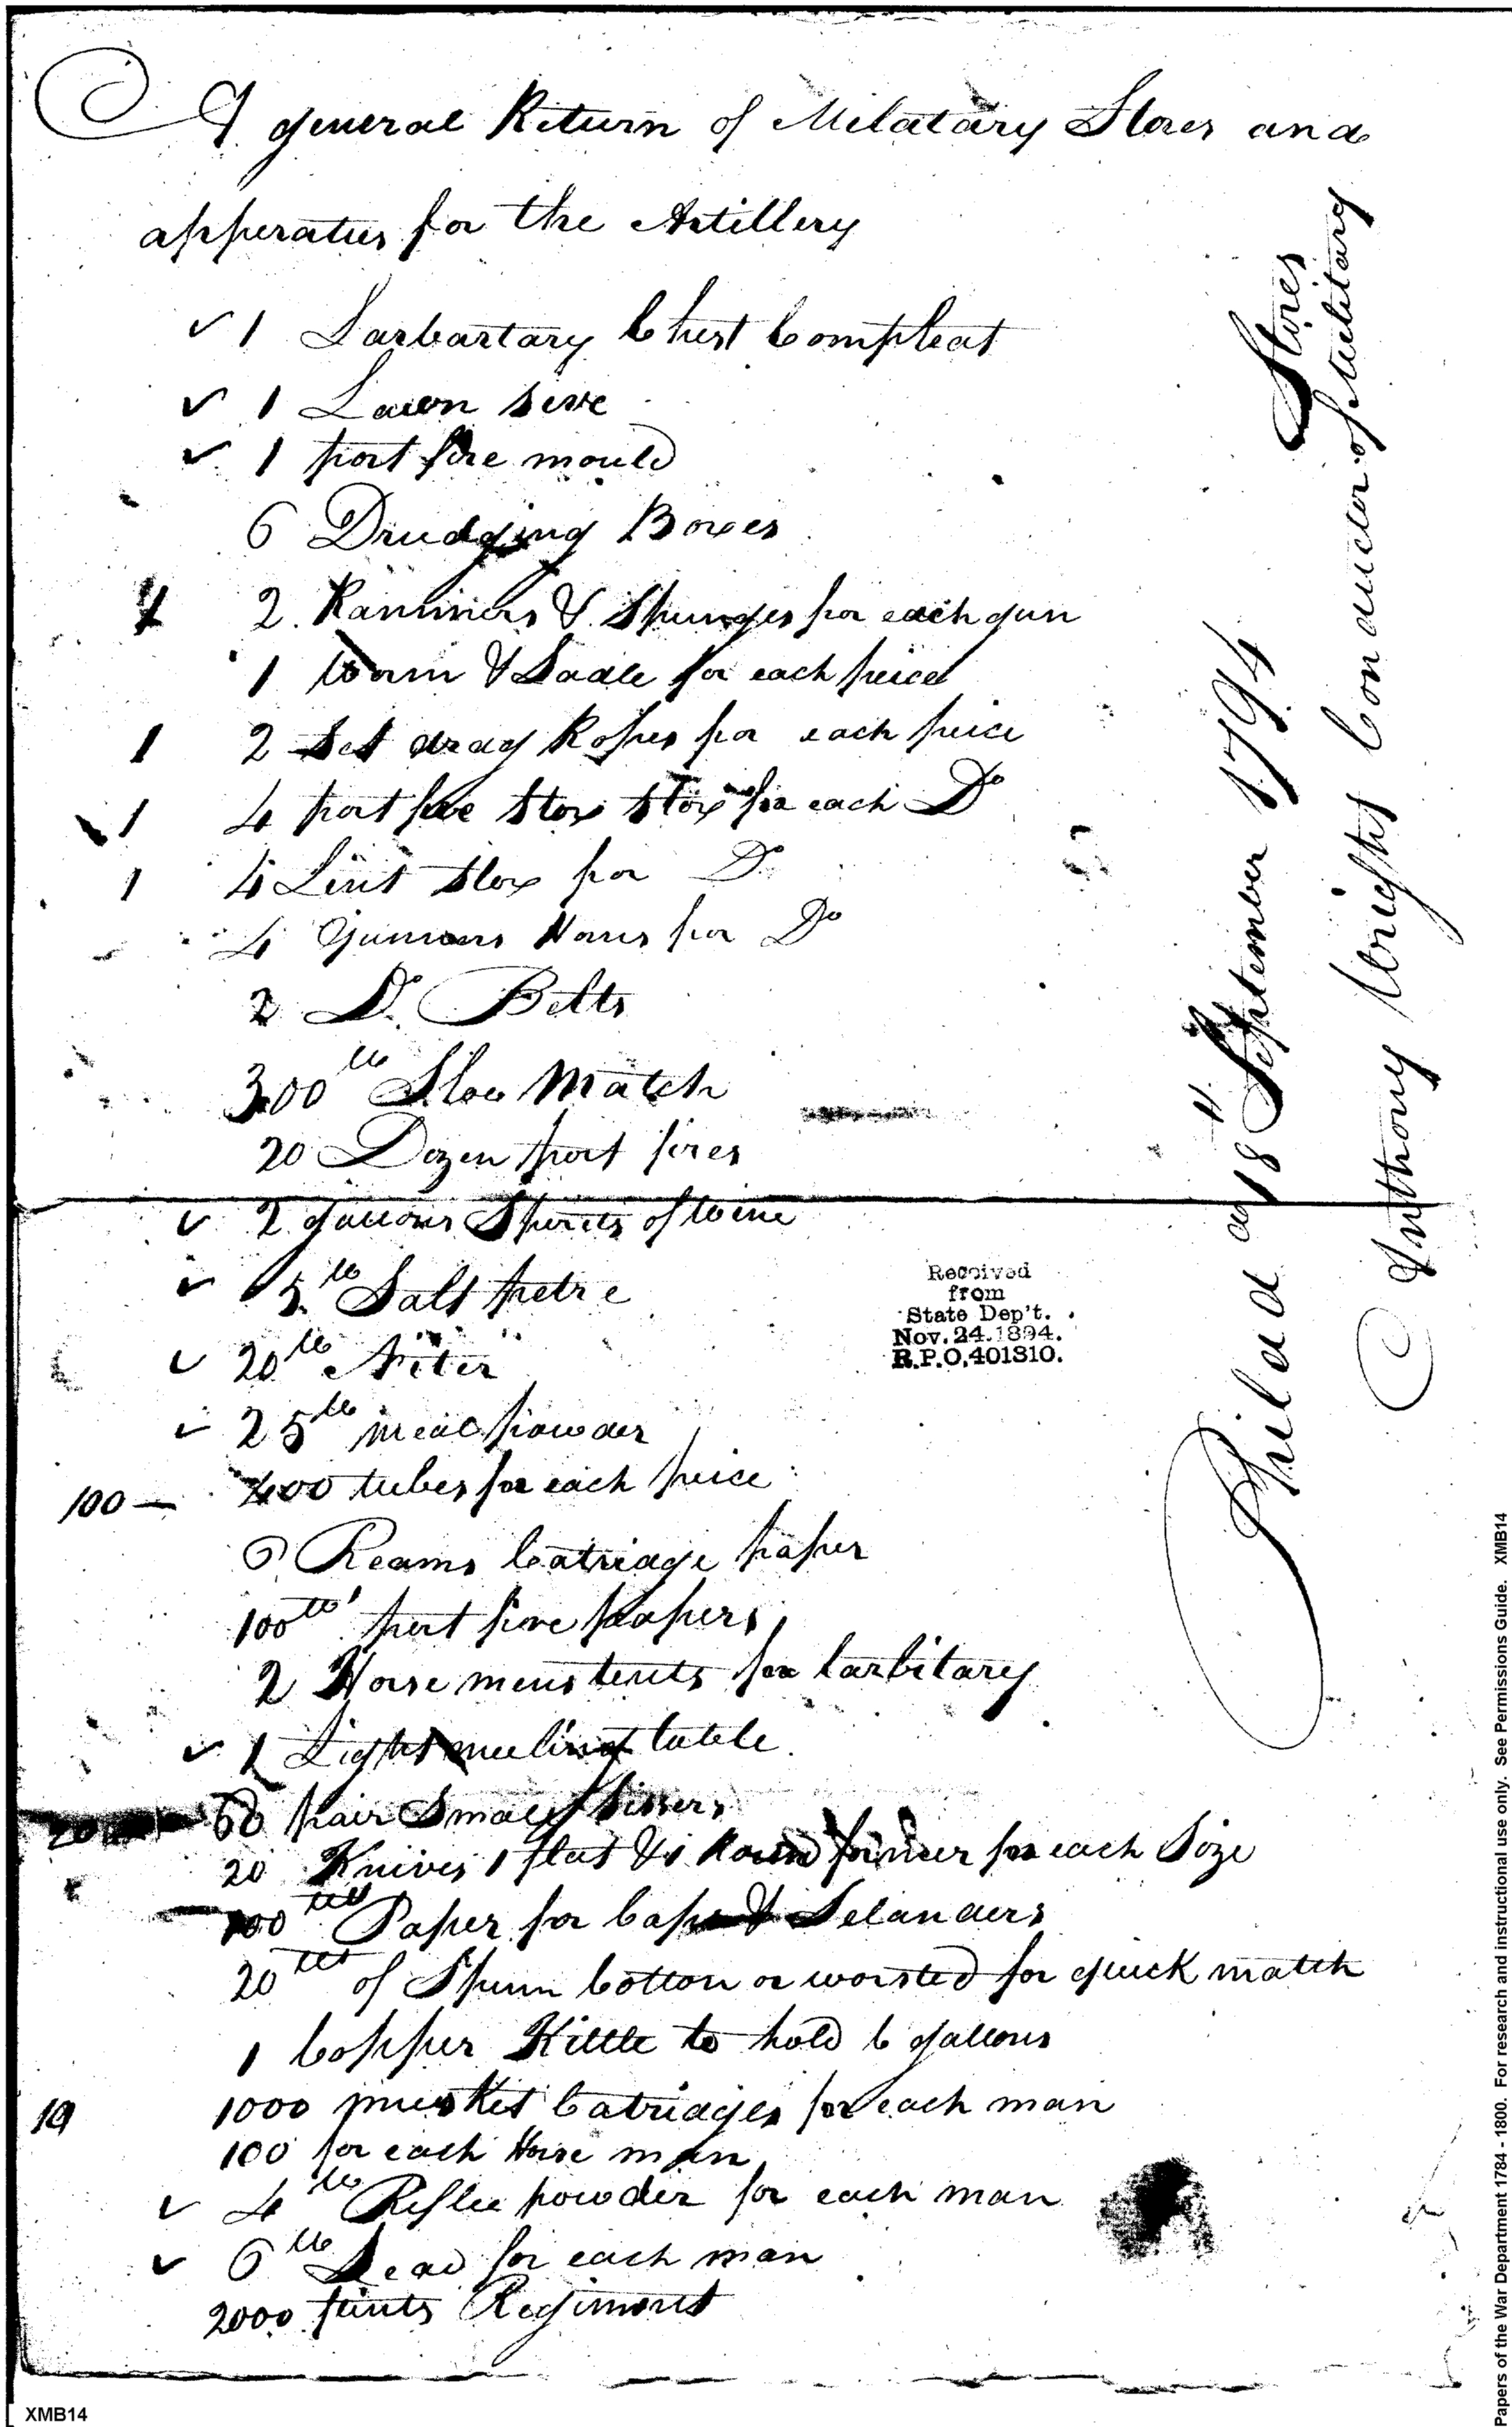 A general Return of Melatary Stores and
apperatus for the Artillery
✓ 1 Larbartary Chest Compleat
✓ 1 Lawn Sive
✓ 1 port fire mould
6 Drudging Boxes
2 Rammers & Spunges for each gun
1 Worm & Ladle for each peice
1 2 Set drag Ropes for each peice
1 4 port fire Stox Stox for each Do
1 4 Lint Stox for Do
4 Gunners Horns for Do
2 Do. Belts
300 lb Slow Match
20 Dozen port fires
✓ 2 gallons Spirits of Wine
✓ 5 lb Salt petre
✓ 20 lb Niter
✓ 25 lb meal powder
100 — 400 tubes for each peice
6 Reams Catriage paper
100 lb port fire papers
2 Horse mens tents for Larbitary
✓ 1 Light meeling table
20 60 pair Small Sissers
20 Knives 1 flat & 1 Round former for each Size
100 lb Paper for Caps & Selanders
20 lb of Spun Cotton or worsted for quick match
1 Copper Kittle to hold 6 gallons
10 1000 musket Catriages for each man
100 for each Horse man
✓ 4 lb Riflee powder for each man
✓ 6 lb Lead for each man
2000 flints Regiment
Philad a 18th September 1794
Anthony Wright Conductor of Military
Stores
Received
from
State Dep't.
Nov. 24. 1894.
R.P.O, 401310.
Papers of the War Department 1784 - 1800. For research and instructional use only. See Permissions Guide. XMB14
XMB14